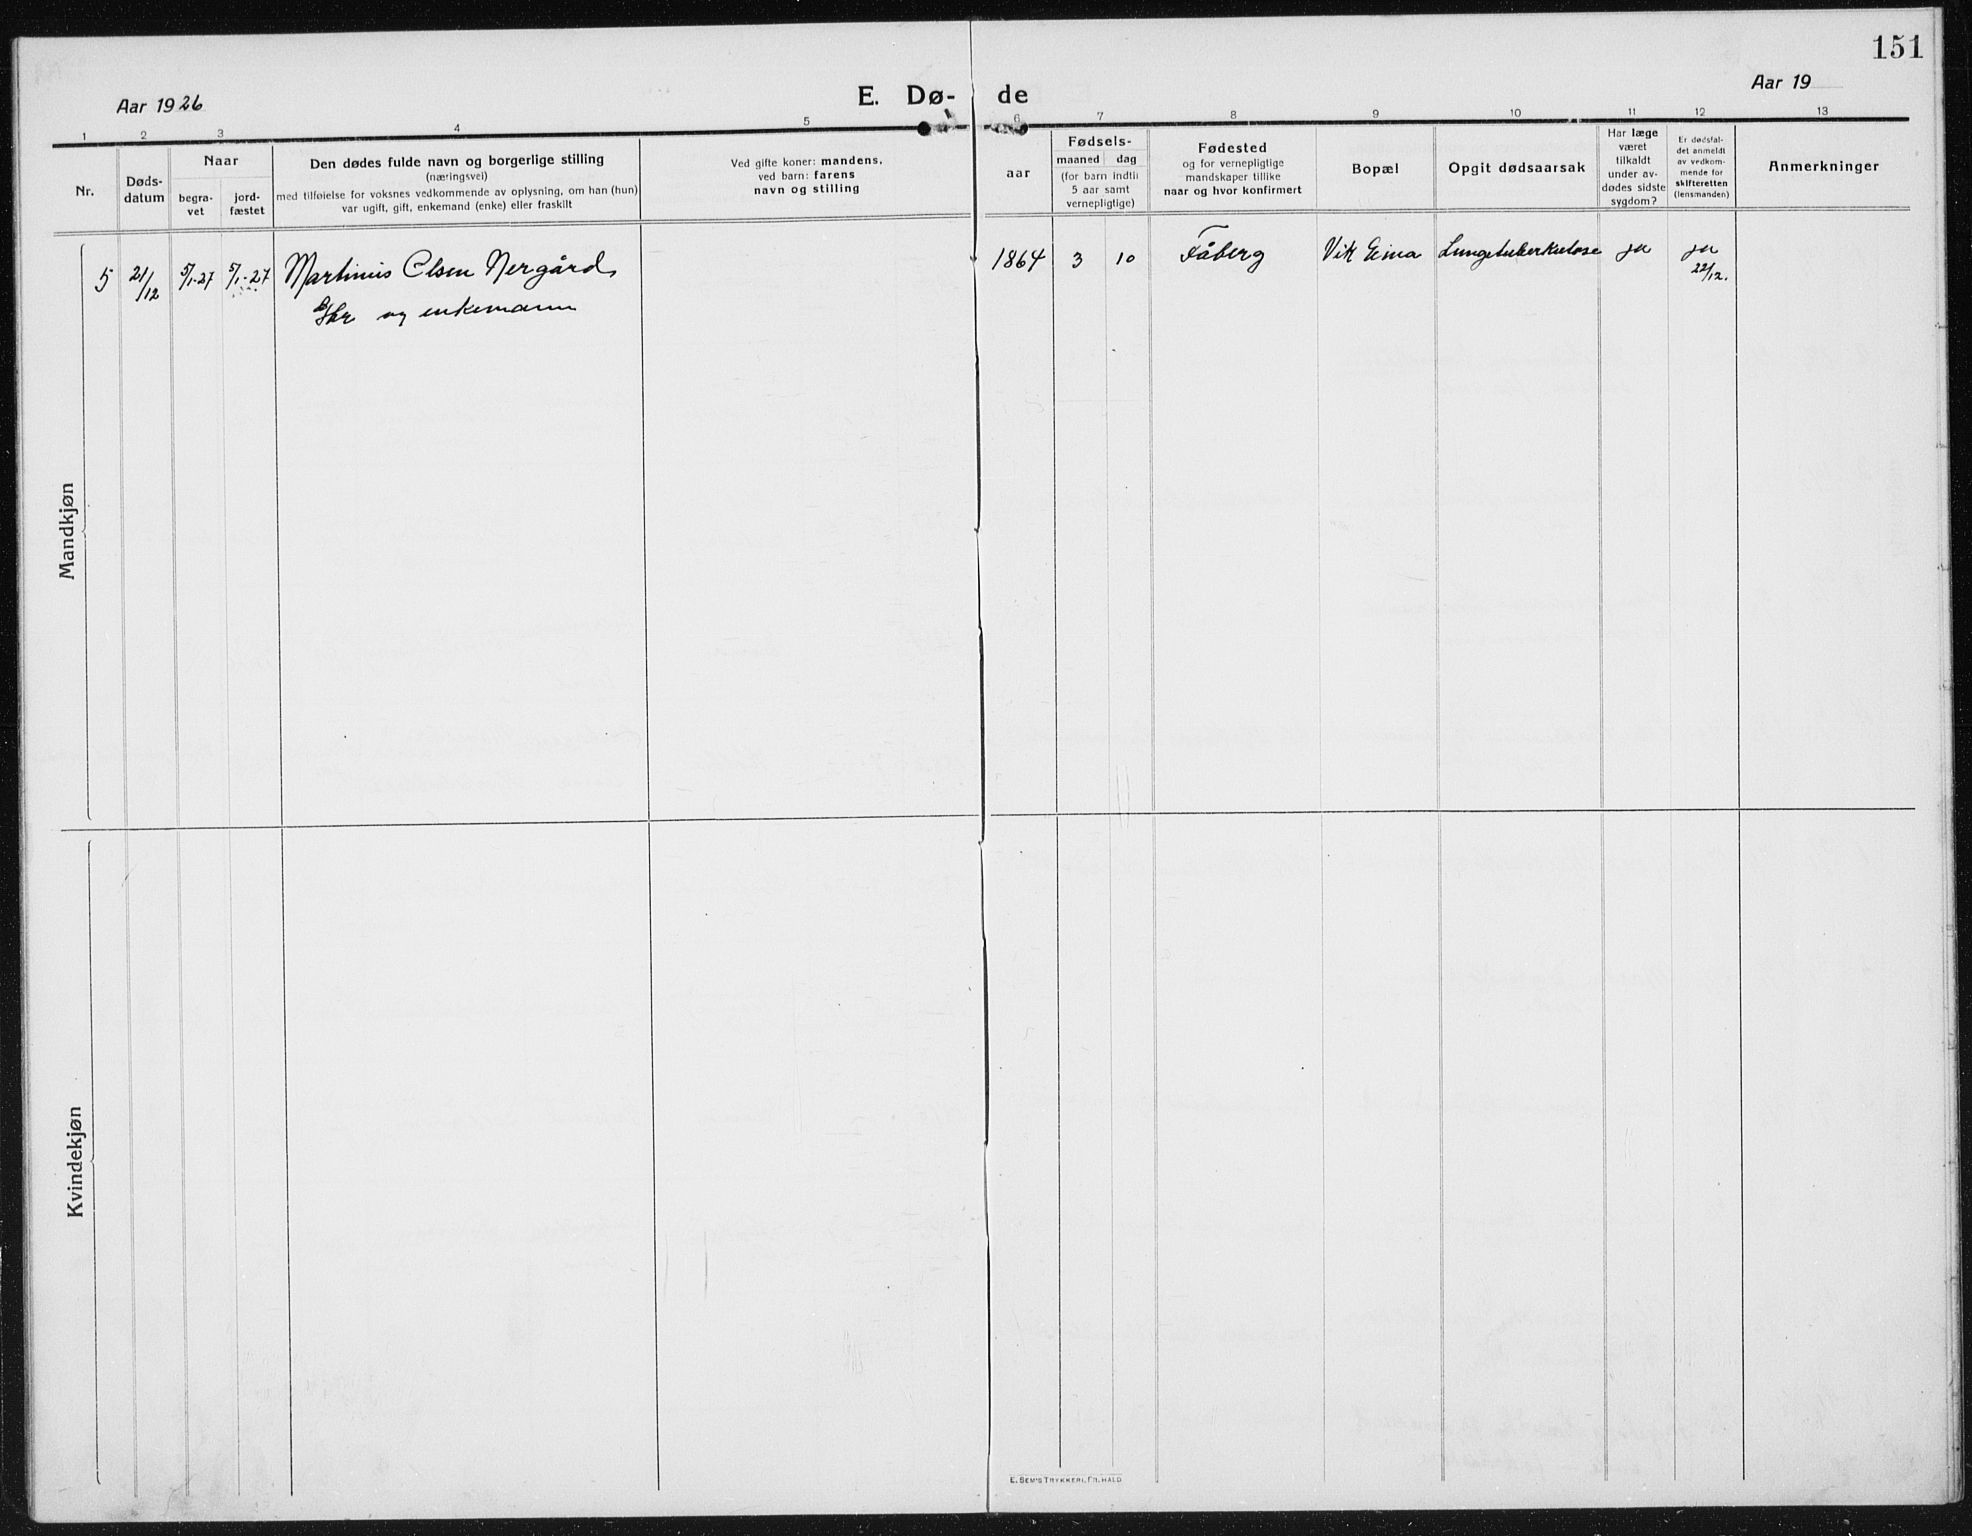 151
Aar 1926
E. Dø- de
Aar 19
1 2 3 4 5 6 7 8 9 10 11 12 13
Nr.
Døds-
datum
Naar
begra-
vet
jord-
fæstet
Den dødes fulde navn og borgerlige stilling
(næringsvei)
med tilføielse for voksnes vedkommende av oplysning, om han (hun)
var ugift, gift, enkemand (enke) eller fraskilt
Ved gifte koner: mandens,
ved barn: farens
navn og stilling
aar
Fødsels-
maaned dag
(for barn indtil
5 aar samt
vernepligtige)
Fødested
og for vernepligtige
mandskaper tillike
naar og hvor konfirmert
Bopæl
Opgit dødsaarsak
Har læge
været
tilkaldt
under av-
dødes sidste
sygdom?
Er dødsfal-
det anmeldt
av vedkom-
mende for
skifteretten
(lensmanden)
Anmerkninger
Mandkjøn
5 21/12 5/1-27 5/1-27 Martinus Olsen Nergård 1864 3 10 Fåberg Vik Eina Lungetuberkulose ja ja
22/12.
og enkemann
Kvindekjøn
E. SEM'S TRYKKERI, FR.HALD